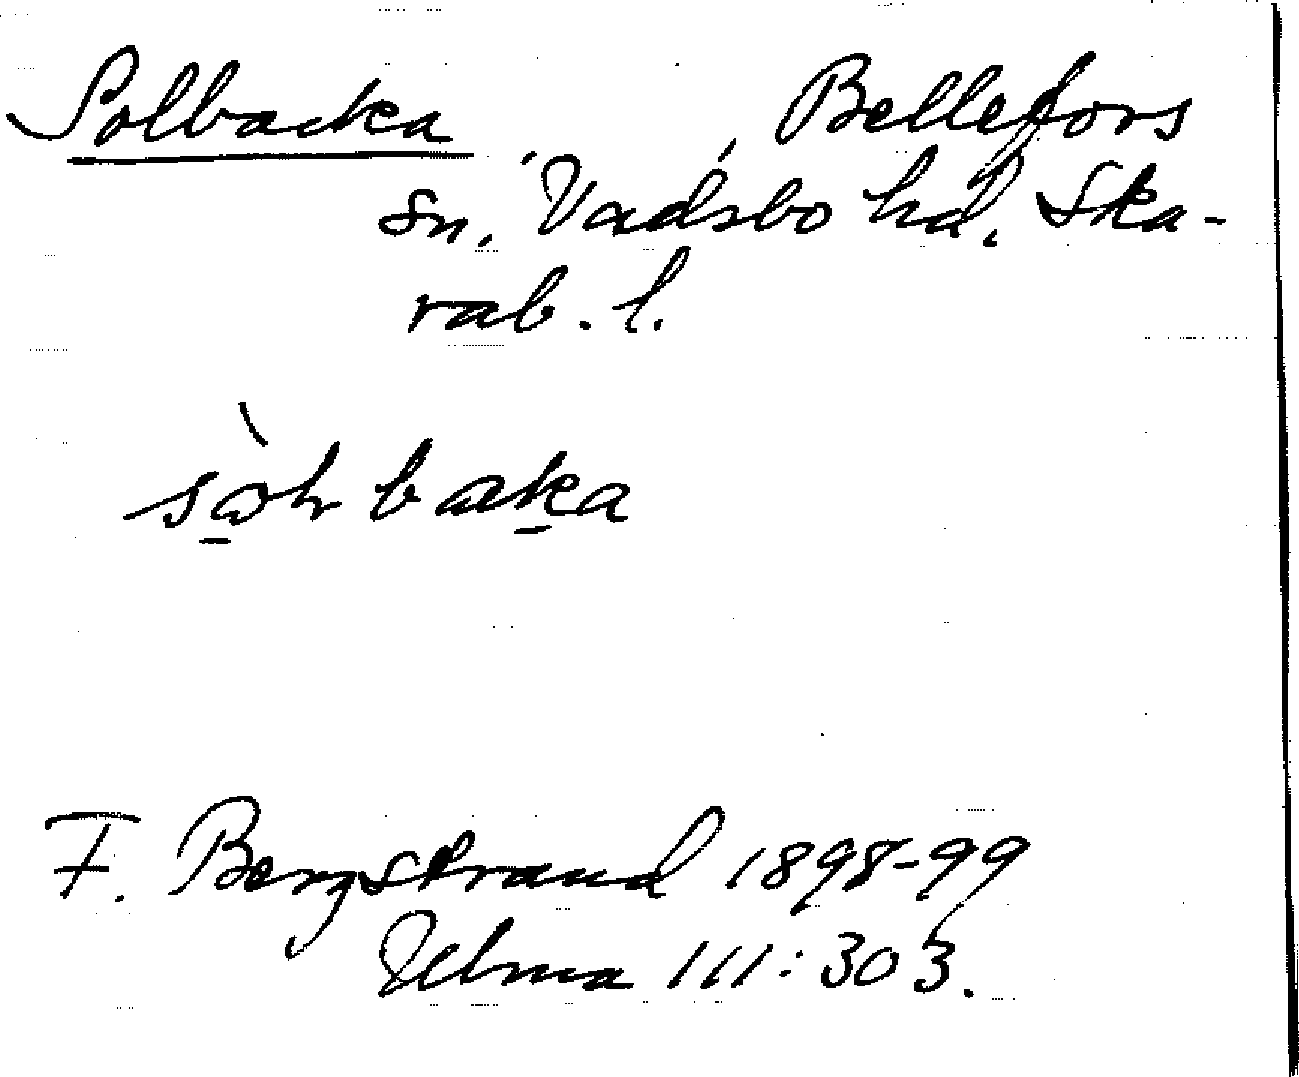 Solbacka, Bellefors
sn, Vadsbo hd, Ska-
rab. l.
sòlrbaka
F. Bergstrand 1898-99
Ulma 111:303.